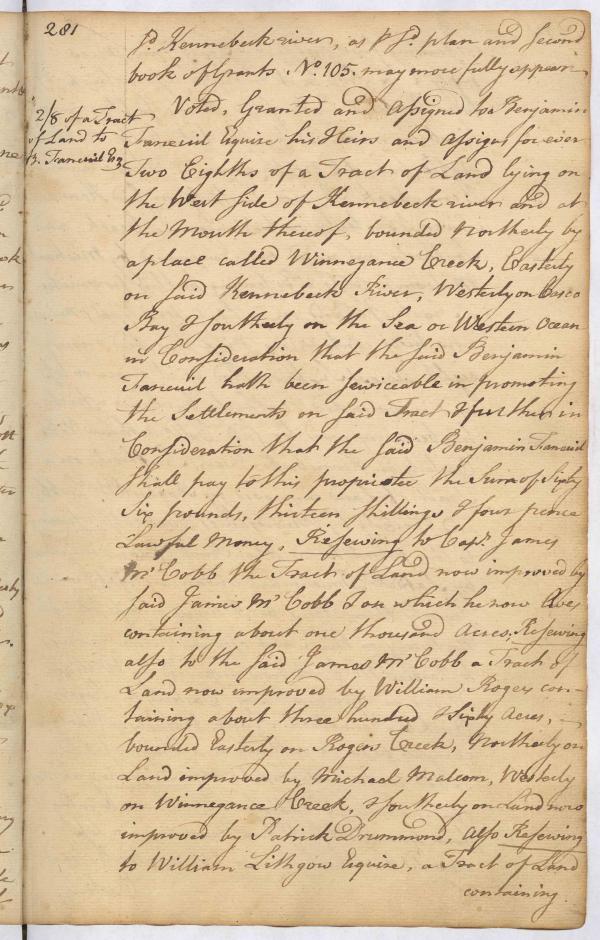 281
sd. Kennebeck river, as ⅌ sd. plan and second
book of Grants No. 105. may more fully appear
2/8 of a Tract
of Land to
B. Faneuil Esq
Voted, Granted and assigned to Benjamin
Faneuil Esquire his Heirs and assigns for ever
Two Eighths of a Tract of Land lying on
the West side of Kennebeck river and at
the Mouth thereof, bounded Northerly by
a place called Winnegance Creek, Easterly
on said Kennebeck River, Westerly on Casco
Bay & southerly on the Sea or Western Ocean
in Consideration that the said Benjamin
Faneuil hath been serviceable in promoting
the Settlements on said Tract & further in
Consideration that the said Benjamin Faneuil
shall pay to this proprietee the Sum of Sixty
Six pounds, thirteen shillings & four pence
Lawful Money, Reserving to Capt. James
Mc Cobb the Tract of Land now improved by
said James Mc Cobb & on which he now lives
containing about one thousand Acres, Reserving
also to the said James Mc Cobb a Tract of
Land now improved by William Rogers con-
taining about three hundred & sixty Acres,
bounded Easterly on Rogers Creek, Northerly on
Land improved by Michael Malcom, Westerly
on Winnegance Creek, & southerly on Land now
improved by Patrick Drummond, also Reserving
to William Lithgow Esquire, a Tract of Land
containing